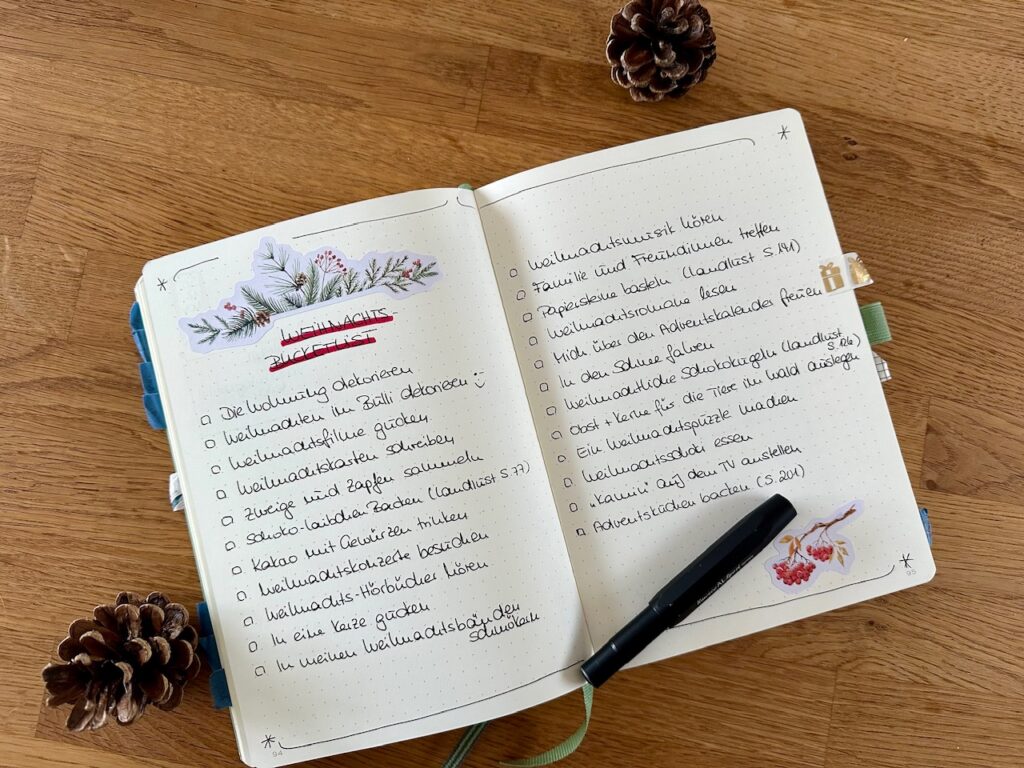 WEIHNACHTS-
BUCKETLIST
Die Wohnung dekorieren
Weihnachten im Bulli dekorieren :)
Weihnachtsfilme gucken
Weihnachtskarten schreiben
Zweige und Zapfen sammeln
Schoko-Laibchen backen (Landlust S. 77)
Kakao mit Gewürzen trinken
Weihnachtskonzerte besuchen
Weihnachts-Hörbücher hören
In eine Kerze gucken
In meinen Weihnachtsbänden
schmökern
94
Weihnachtsmusik hören
Familie und Freundinnen treffen
Papiersterne basteln (Landlust S. 141)
Weihnachtsromane lesen
Mich über den Adventskalender freuen
In den Schnee fahren
Weihnachtliche Schokokugeln (Landlust
S. 126)
Obst + Kerne für die Tiere im Wald auslegen
Ein Weihnachtspuzzle machen
Weihnachtsschoki essen
„Kamin" auf dem TV anstellen
Adventskuchen backen (S. 201)
95